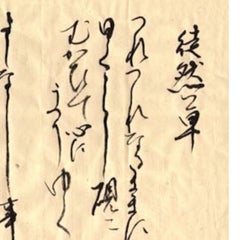 徒然草
つれつれなるままに
日くらし硯に
むかひて心に
うつりゆく
よしなし事